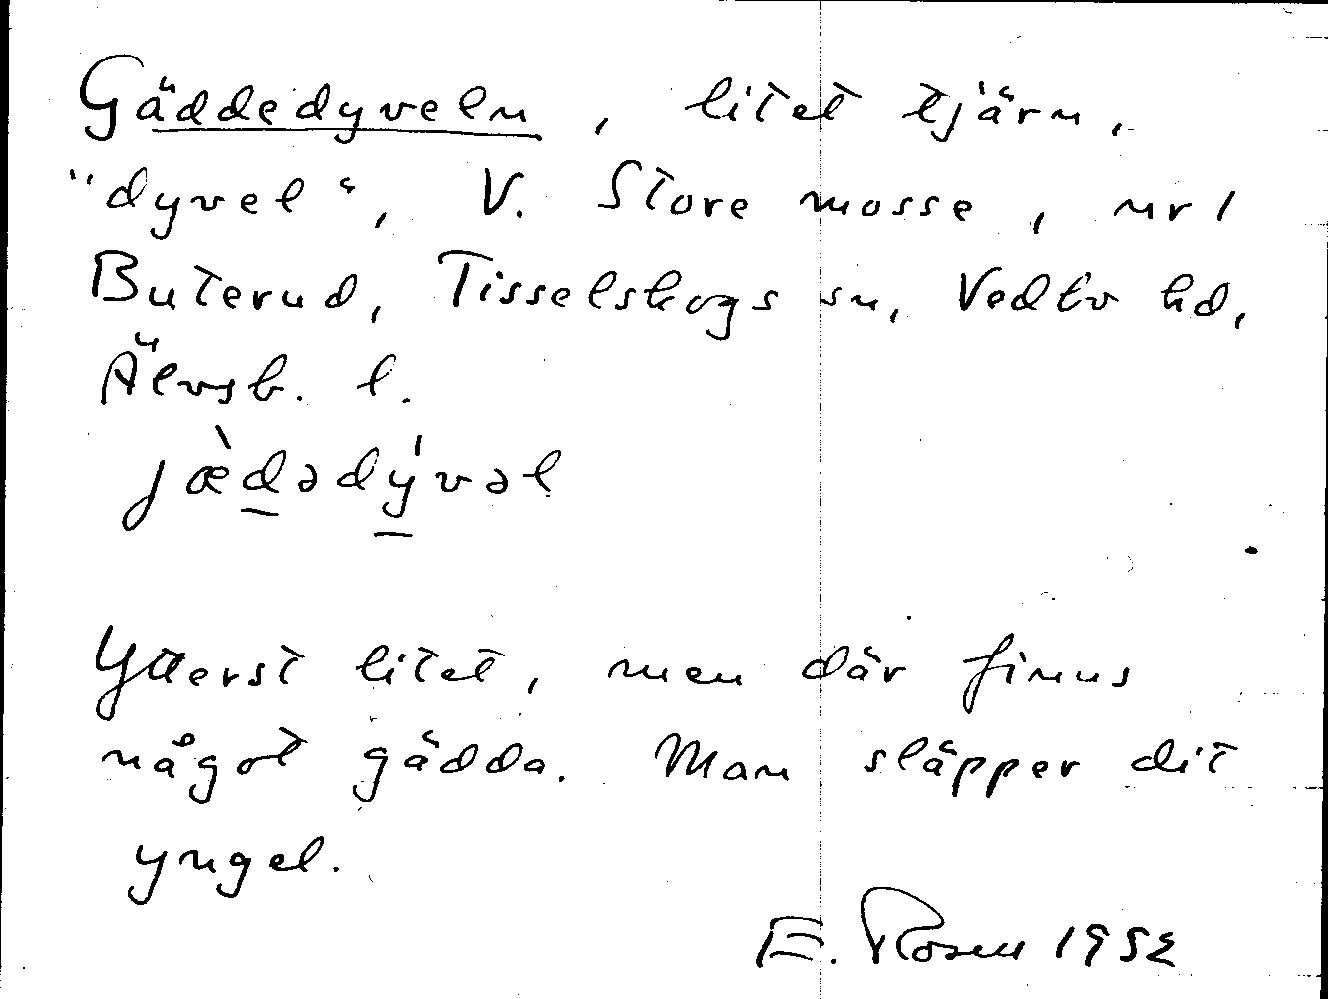 Gäddedyveln, litet tjärn,
"dyvel", V. Store mosse, nr 1
Buterud, Tisselskogs sn, Vedbo hd,
Älvsb. l.
jæ̀d̲ədý̲vəl
Ytterst litet, men där finns
något gädda. Man släpper dit
yngel.
E. Rosen 1952